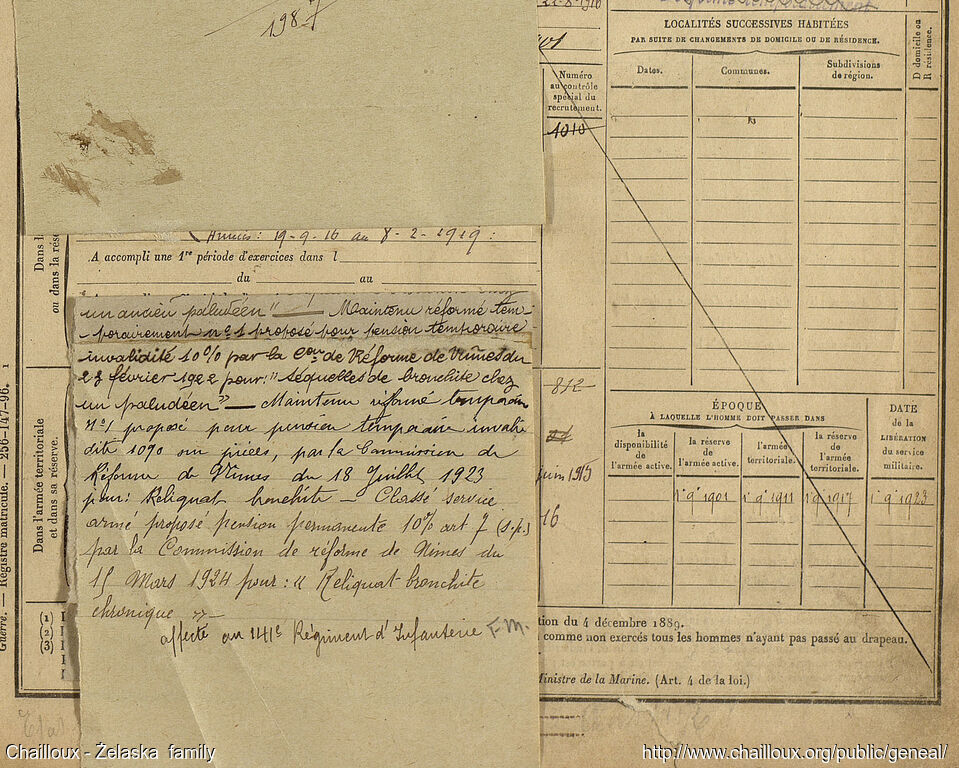 198
22-8-1916
LOCALITÉS SUCCESSIVES HABITÉES
PAR SUITE DE CHANGEMENTS DE DOMICILE OU DE RÉSIDENCE.
D domicile ou
R résidence.
Dates.
Communes.
Subdivisions
de région.
Numéro
au contrôle
spécial du
recrutement.
1010
Dans l
ou dans la rése
Armée: 19-9-16 au 8-2-1919:
A accompli une 1re période d'exercices dans l
du au
un ancien paludéen" — Maintenu réformé tem-
porairement n°1 proposé pour pension temporaire
invalidité 10% par la Con de Réforme de Nîmes du
23 février 1922 pour: "séquelles de bronchite chez
un paludéen" — Maintenu réformé temporaire
n°1 proposé pour pension temporaire invali
dité 10% sur pièces, par la Commission de
Réforme de Nîmes du 18 Juillet 1923
pour: Reliquat bronchite — Classé service
armé proposé pension permanente 10% art 7 (s.p.)
par la Commission de réforme de Nîmes du
15 Mars 1924 pour: « Reliquat bronchite
chronique » —
affecté au 141e Régiment d'Infanterie F.M.
812
juin 1915
16
ÉPOQUE
À LAQUELLE L'HOMME DOIT PASSER DANS
DATE
DE LA
LIBÉRATION
DU service
militaire.
la
disponibilité
de
l'armée active.
la réserve
de
l'armée active.
l'armée
territoriale.
la réserve
de
l'armée
territoriale.
1 9 1901
1 9 1911
1 9 1917
1 9 1923
Dans l'armée territoriale
et dans sa réserve.
Guerre. — Registre matricule. — 256-147-96. 1
(1)
(2)
(3)
tion du 4 décembre 1889.
comme non exercés tous les hommes n'ayant pas passé au drapeau.
Ministre de la Marine. (Art. 4 de la loi.)
Chailloux - Żelaska family
http://www.chailloux.org/public/geneal/